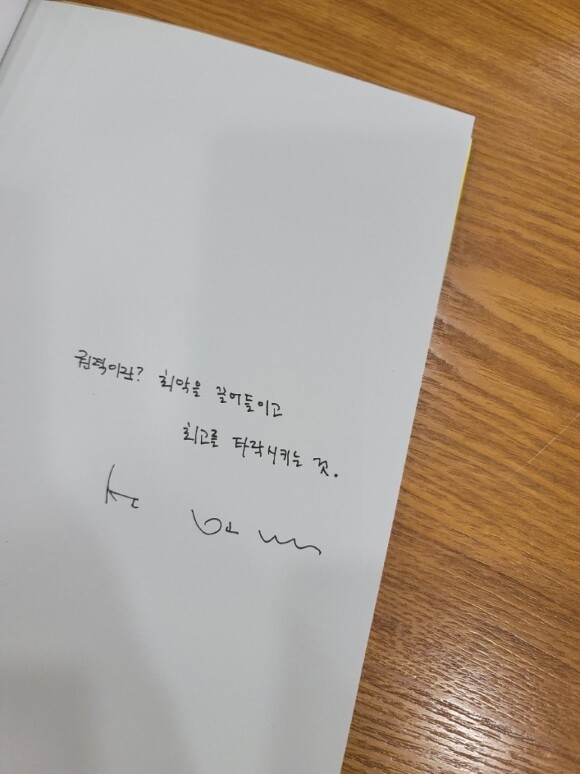 권력이란? 최악을 끌어들이고
최고를 타락시키는 것.